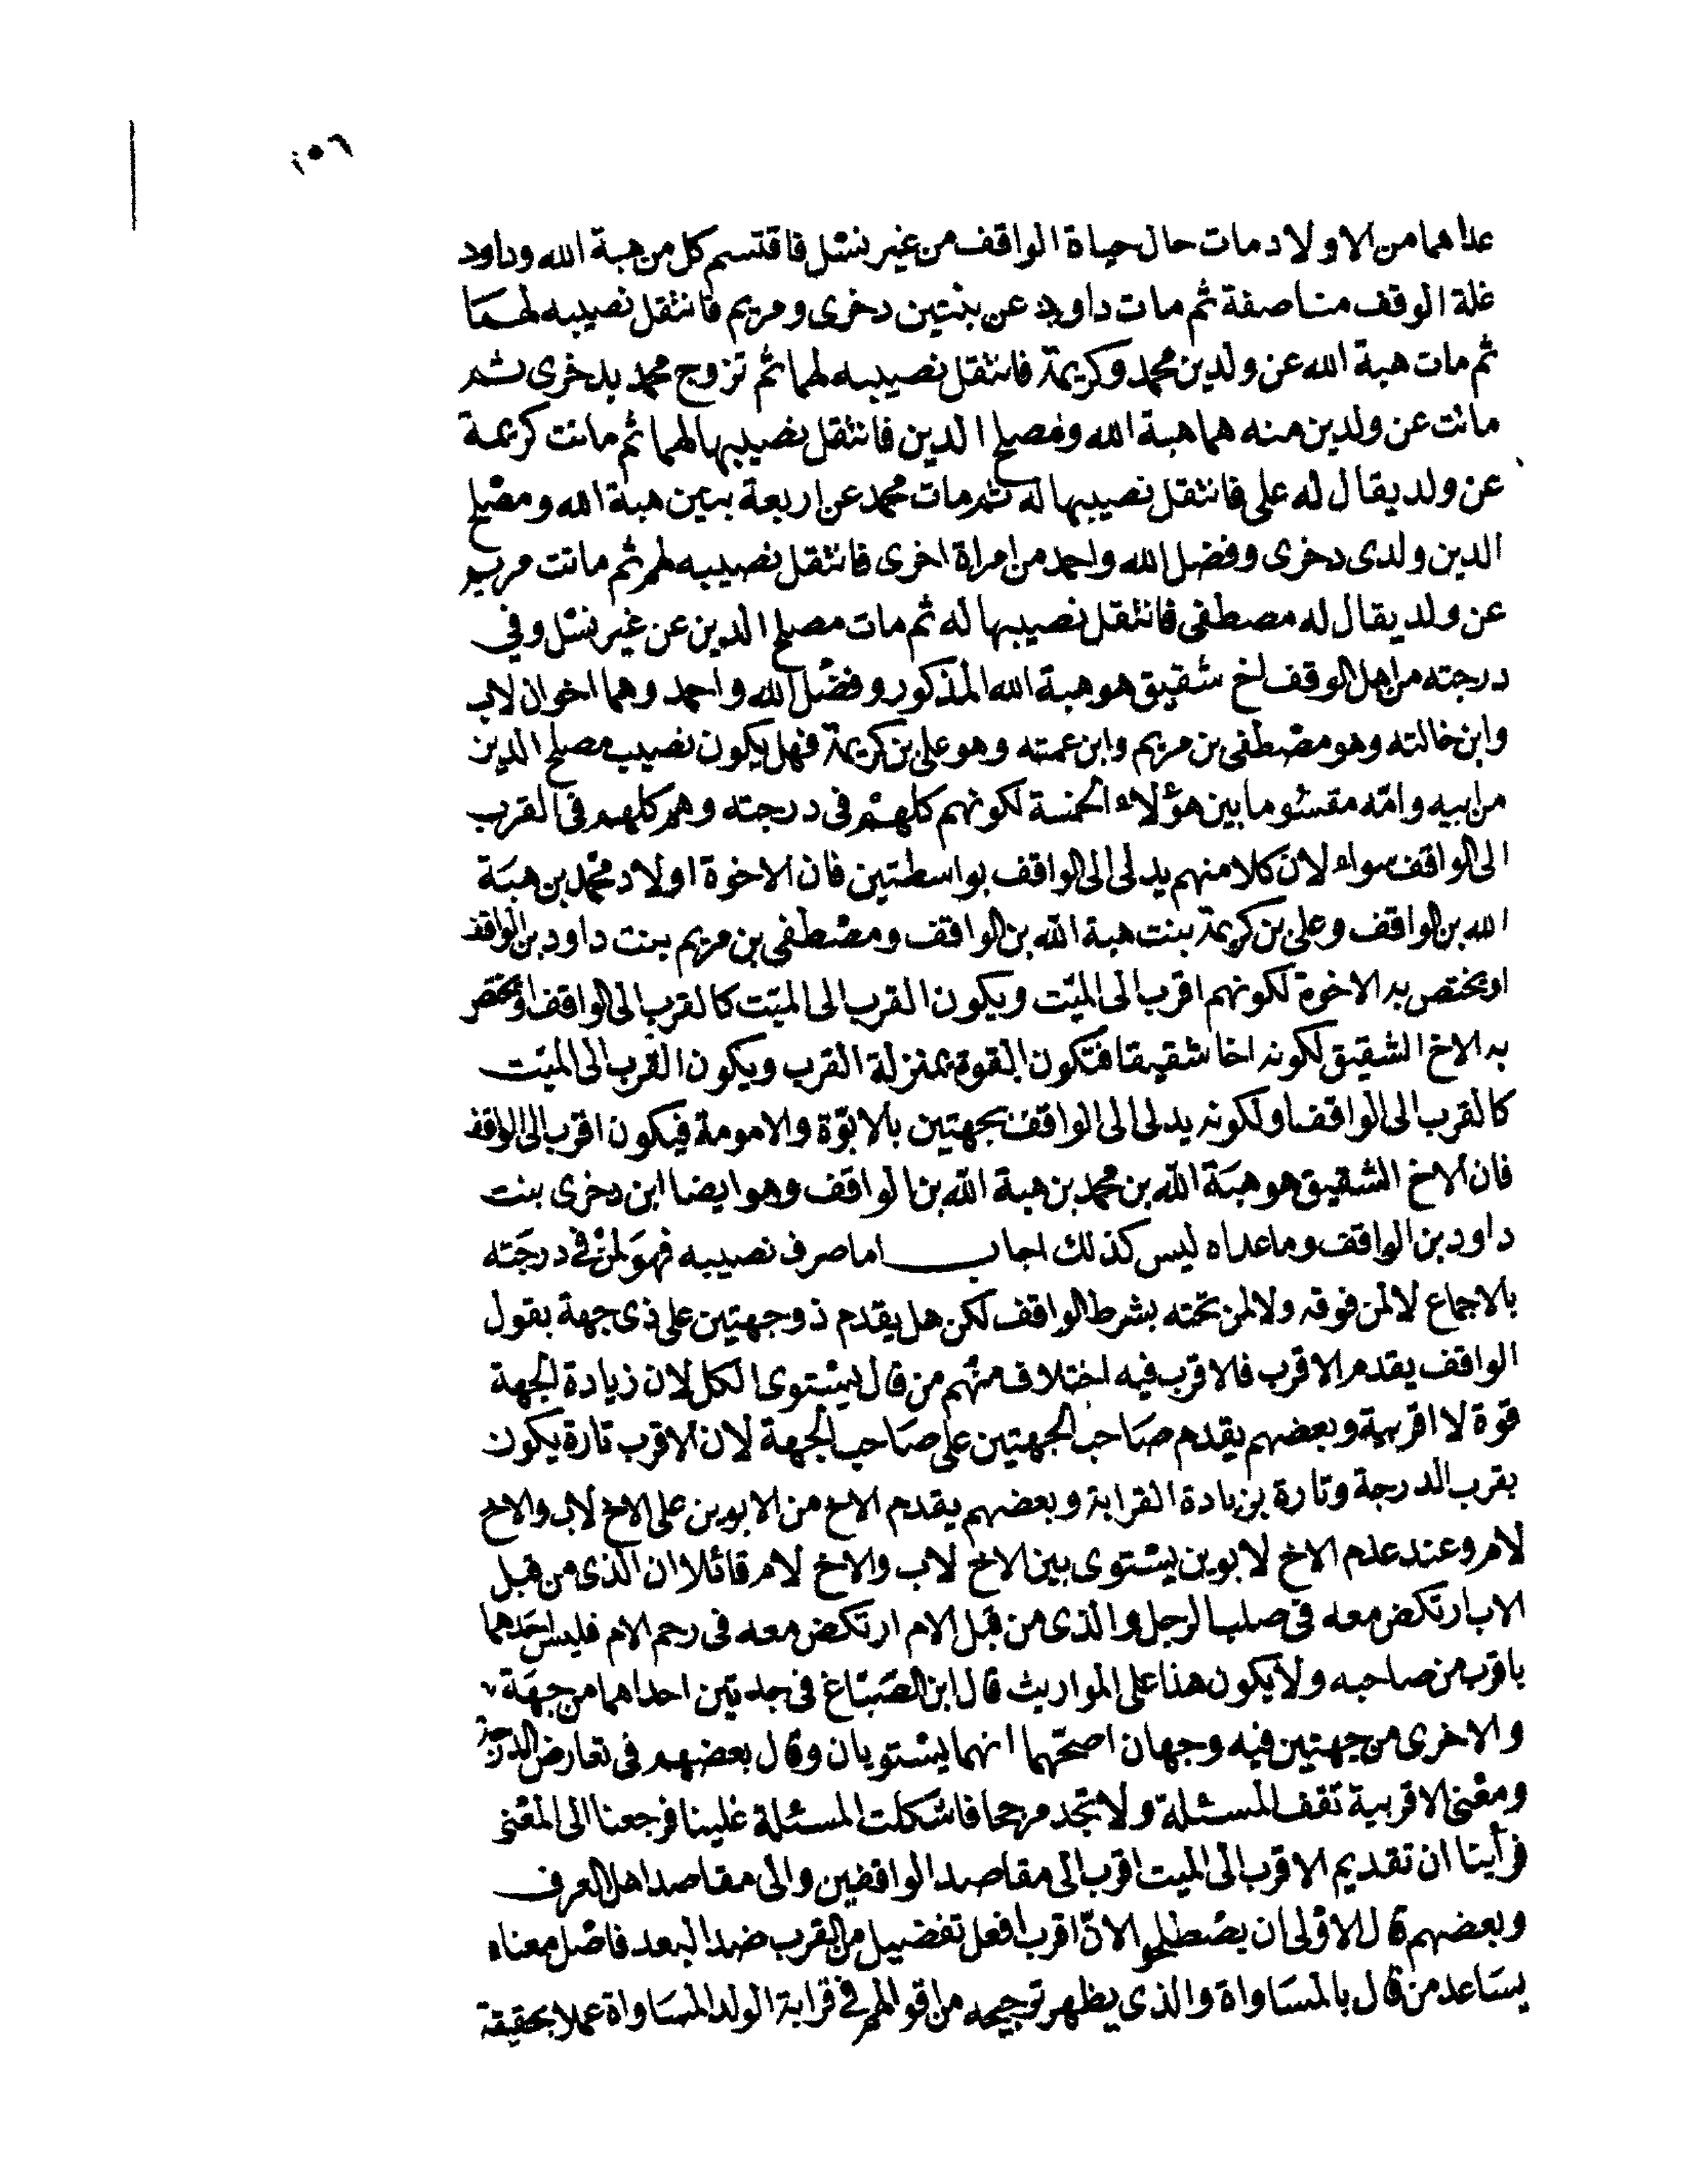 ١٥٦
عداهما من الاولاد مات حال حياة الواقف من غير نسل فاقتسم كل من هبة الله وداود
غلة الوقف مناصفة ثم مات داود عن بنتين دخرى ومريم فانتقل نصيبه لهما
ثم مات هبة الله عن ولدين محمد وكريمة فانتقل نصيبه لهما ثم تزوج محمد بدخرى ثم
ماتت عن ولدين منه هما هبة الله ومصلح الدين فانتقل نصيبها لهما ثم ماتت كريمة
عن ولد يقال له على فانتقل نصيبها له ثم مات محمد عن اربعة بنين هبة الله ومصلح
الدين ولدى دخرى وفضل الله واحمد من امراة اخرى فانتقل نصيبه لهم ثم ماتت مريم
عن ولد يقال له مصطفى فانتقل نصيبها له ثم مات مصلح الدين عن غير نسل وفي
درجته من اهل الوقف اخ شقيق هو هبة الله المذكور وفضل الله واحمد وهما اخوان لاب
وابن خالته وهو مصطفى بن مريم وابن عمته وهو على بن كريمة فهل يكون نصيب مصلح الدين
من ابيه وامّه مقسوما بين هؤلاء الخمسة لكونهم كلهم في درجته وهم كلهم في القرب
الى الواقف سواء لان كلا منهم يدلى الى الواقف بواسطتين فان الاخوة اولاد محمد بن هبة
الله بن الواقف وعلى بن كريمة بنت هبة الله بن الواقف ومصطفى بن مريم بنت داود بن الواقف
او يختص به الاخوة لكونهم اقرب الى الميّت ويكون القرب الى الميّت كالقرب الى الواقف او يختص
به الاخ الشقيق لكونه اخا شقيقا فتكون القوة بمنزلة القرب ويكون القرب الى الميّت
كالقرب الى الواقف او لكونه يدلى الى الواقف بجهتين بالابوّة والامومة فيكون اقرب الى الواقف
فان الاخ الشقيق هو هبة الله بن محمد بن هبة الله بن الواقف وهو ايضا ابن دخرى بنت
داود بن الواقف وما عداه ليس كذلك اجاب اما صرف نصيبه فهو لمن في درجته
بالاجماع لا لمن فوقه ولا لمن تحته بشرط الواقف لكن هل يقدم ذو جهتين على ذى جهة بقول
الواقف يقدم الاقرب فالاقرب فيه اختلاف منهم من قال يستوى الكل لان زيادة الجهة
قوة لا اقربية وبعضهم يقدم صاحب الجهتين على صاحب الجهة لان الاقرب تارة يكون
بقرب الدرجة وتارة بزيادة القرابة وبعضهم يقدم الاخ من الابوين على الاخ لاب والاخ
لام وعند عدم الاخ لابوين يستوى بين الاخ لاب والاخ لام قائلا ان الذى من قبل
الاب ارتكض معه في صلب الرجل والذى من قبل الام ارتكض معه في رحم الام فليس احدهما
باقرب من صاحبه ولا يكون هذا على المواريث قال ابن الصّبّاغ في جدتين احداهما من جهة
والاخرى من جهتين فيه وجهان اصحّهما انهما يستويان وقال بعضهم في تعارض الدرجة
ومعنى الاقربية تقف المسئلة ولا تجد مرجحا فاشكلت المسئلة علينا فرجعنا الى المعنى
فرأينا ان تقديم الاقرب الى الميت اقرب الى مقاصد الواقفين والى مقاصد اهل العرف
وبعضهم قال الاولى ان يصطلحوا لانّ اقرب افعل تفضيل من القرب ضد البعد فاصل معناه
يساعد من قال بالمساواة والذى يظهر ترجيحه من اقوالهم في قرابة الولد المساواة عملا بحقيقة